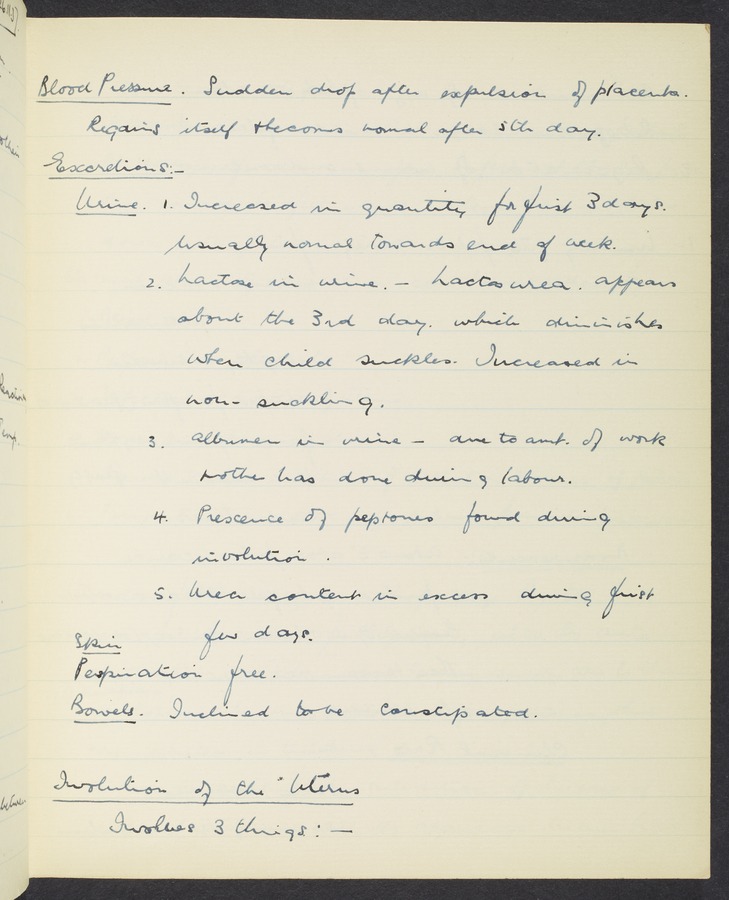 Blood Pressure. Sudden drop after expulsion of placenta.
Regains itself & becomes normal after 5th day.
Excretions:-
Urine. 1. Increased in quantity for first 3 days.
Usually normal towards end of week.
2. Lactose in urine. - Lactosurea. appears
about the 3rd day. which diminishes
when child suckles. Increased in
non-suckling.
3. Albumen in urine - due to amt. of work
mother has done during labour.
4. Prescence of peptones found during
involution.
5. Urea content in excess during first
few days.
Skin
Perspiration free.
Bowels. Inclined to be constipated.
Involution of the Uterus
Involves 3 things: -